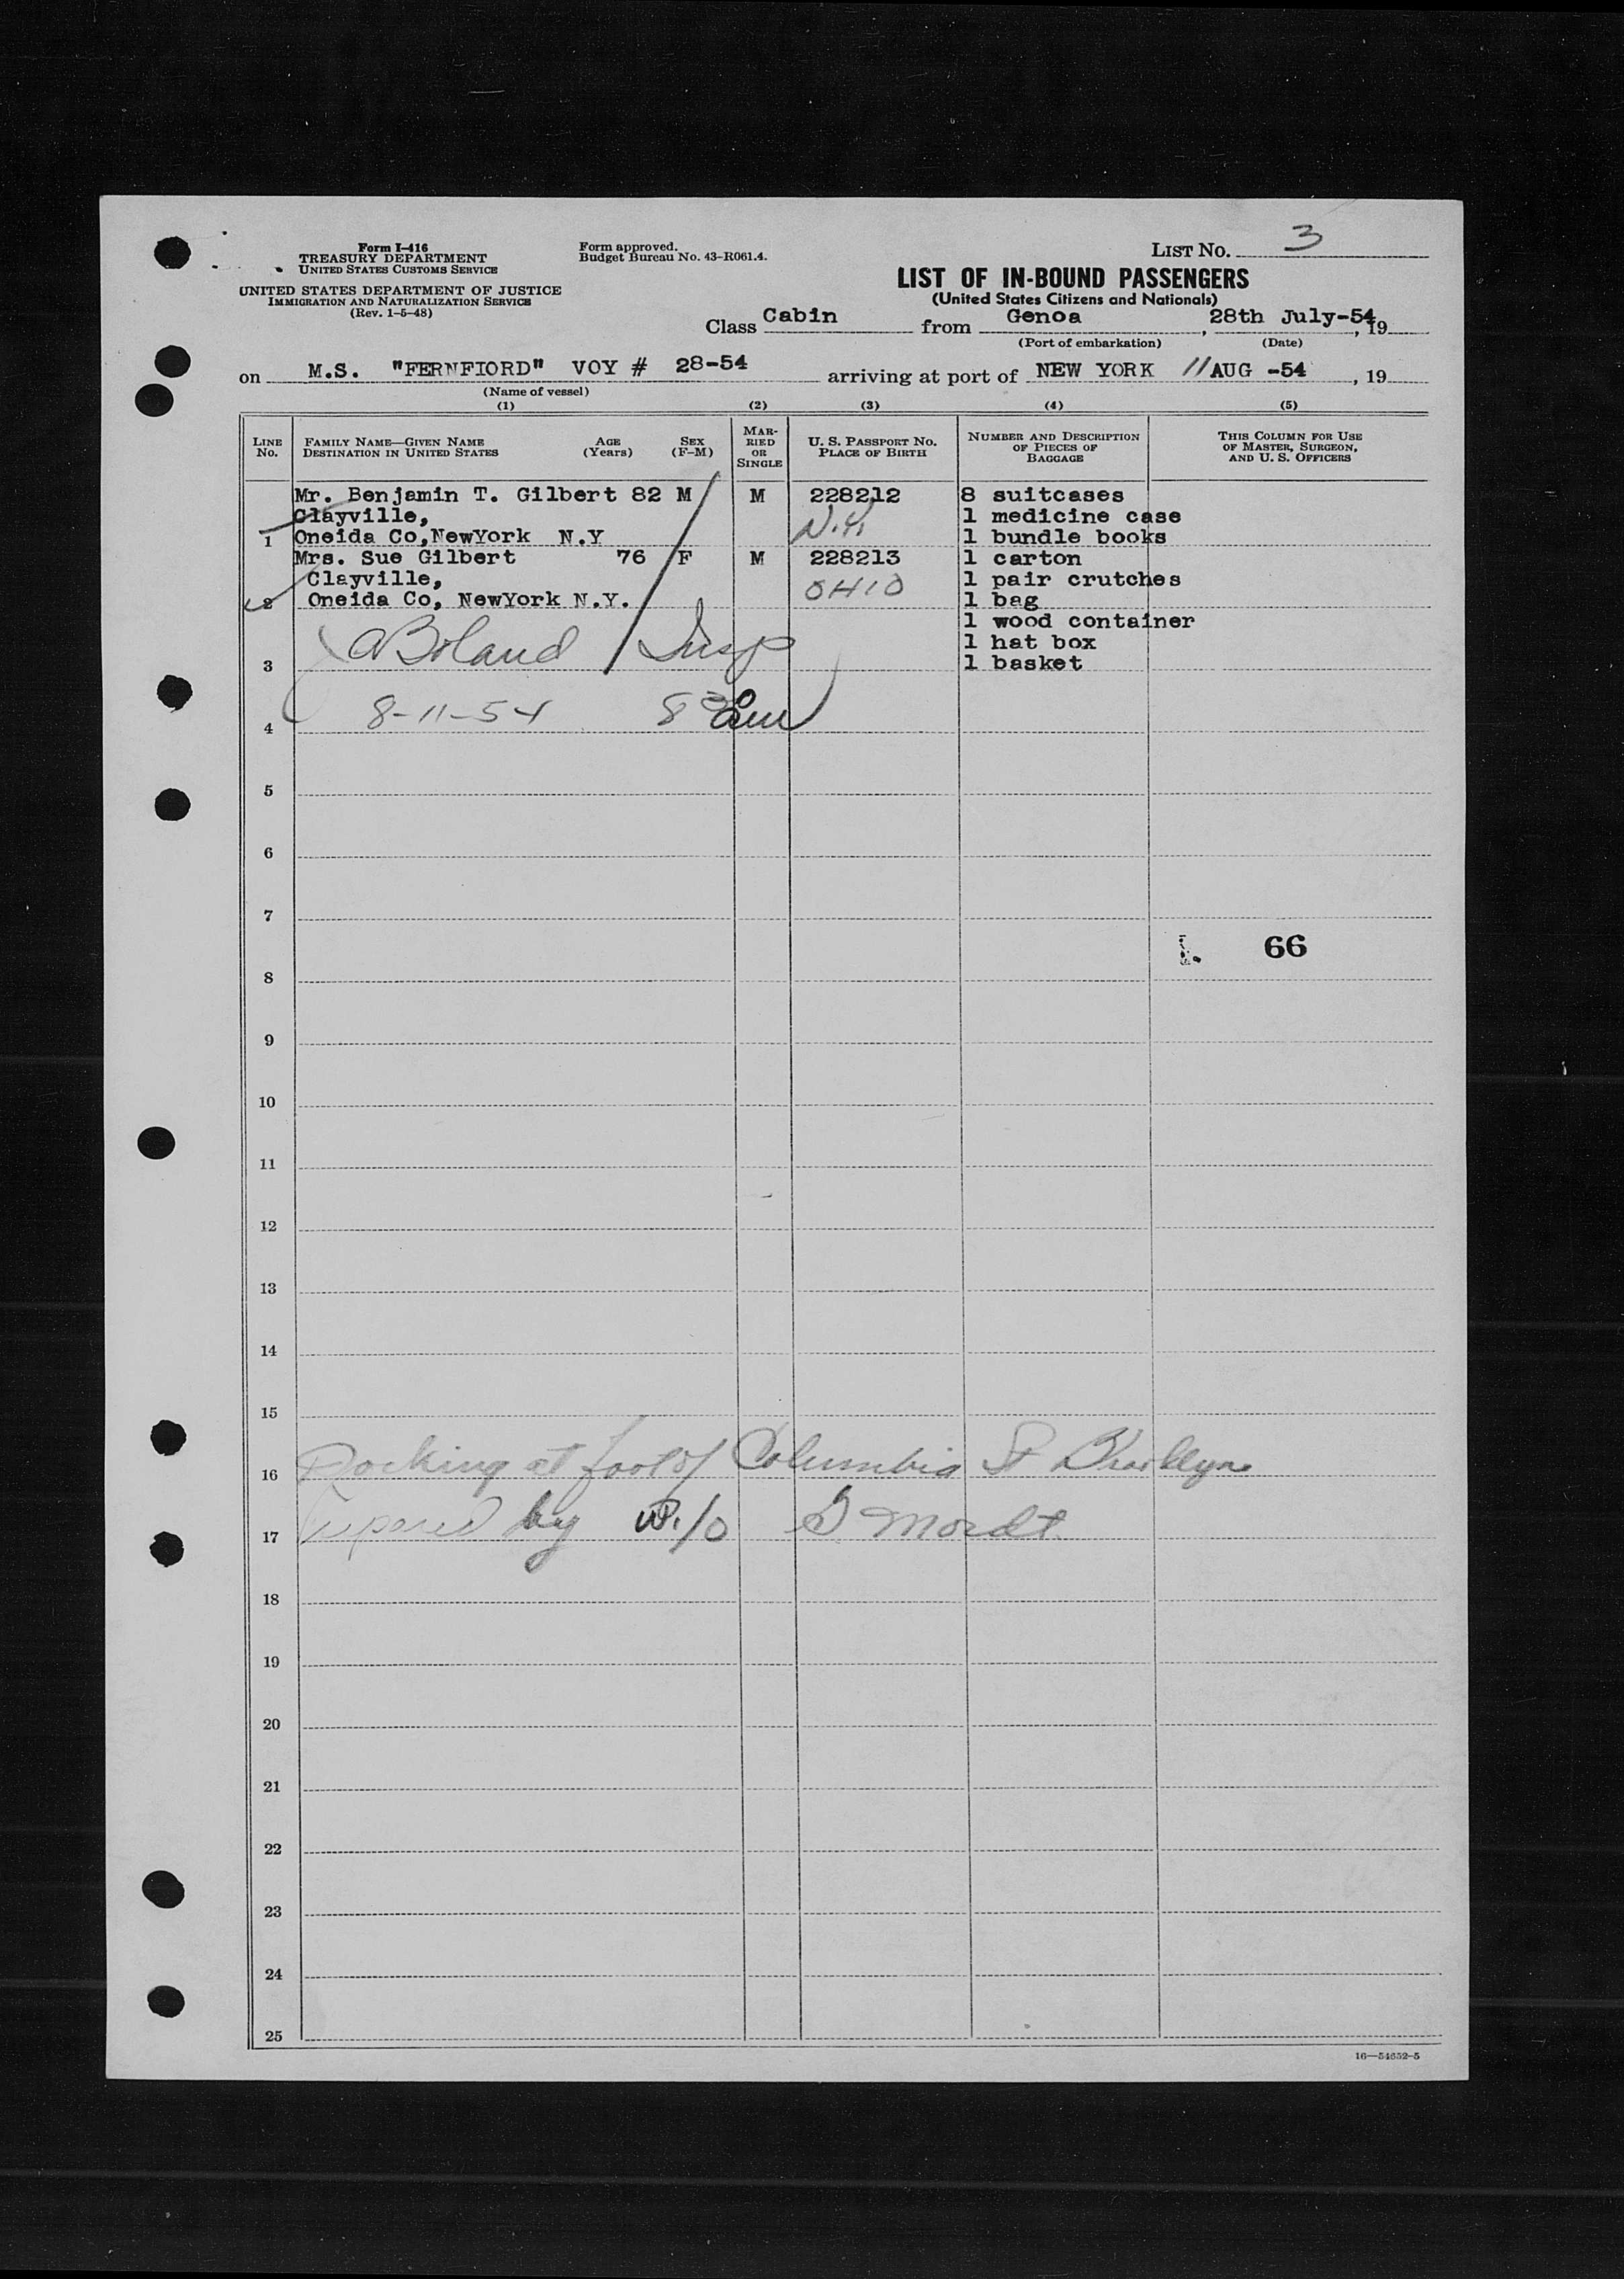 Form I-416
TREASURY DEPARTMENT
UNITED STATES CUSTOMS SERVICE
UNITED STATES DEPARTMENT OF JUSTICE
IMMIGRATION AND NATURALIZATION SERVICE
(Rev. 1-5-48)
Form approved.
Budget Bureau No. 43-R061.4.
LIST NO. 3
LIST OF IN-BOUND PASSENGERS
(United States Citizens and Nationals)
Class Cabin from Genoa, 28th July-54, 19
(Port of embarkation) (Date)
on M.S. "FERNFIORD" VOY # 28-54 arriving at port of NEW YORK 11 AUG -54, 19
(Name of vessel)
(1) (2) (3) (4) (5)
LINE No. FAMILY NAME—GIVEN NAME DESTINATION IN UNITED STATES AGE (Years) SEX (F-M) MARRIED OR SINGLE U. S. PASSPORT NO. PLACE OF BIRTH NUMBER AND DESCRIPTION OF PIECES OF BAGGAGE THIS COLUMN FOR USE OF MASTER, SURGEON, AND U. S. OFFICERS
Mr. Benjamin T. Gilbert 82 M M 228212 8 suitcases
Clayville, N.Y. 1 medicine case
1 Oneida Co,NewYork N.Y 1 bundle books
Mrs. Sue Gilbert 76 F M 228213 1 carton
Clayville, OHIO 1 pair crutches
2 Oneida Co, NewYork N.Y. 1 bag
1 wood container
ABoland Insp 1 hat box
3 1 basket
8-11-54 8 30 am
4
5
6
7
66
8
9
10
11
12
13
14
15
16 Docking at foot of Columbia St Brooklyn
17 by W/o G Mordt
18
19
20
21
22
23
24
25
16—54652-5